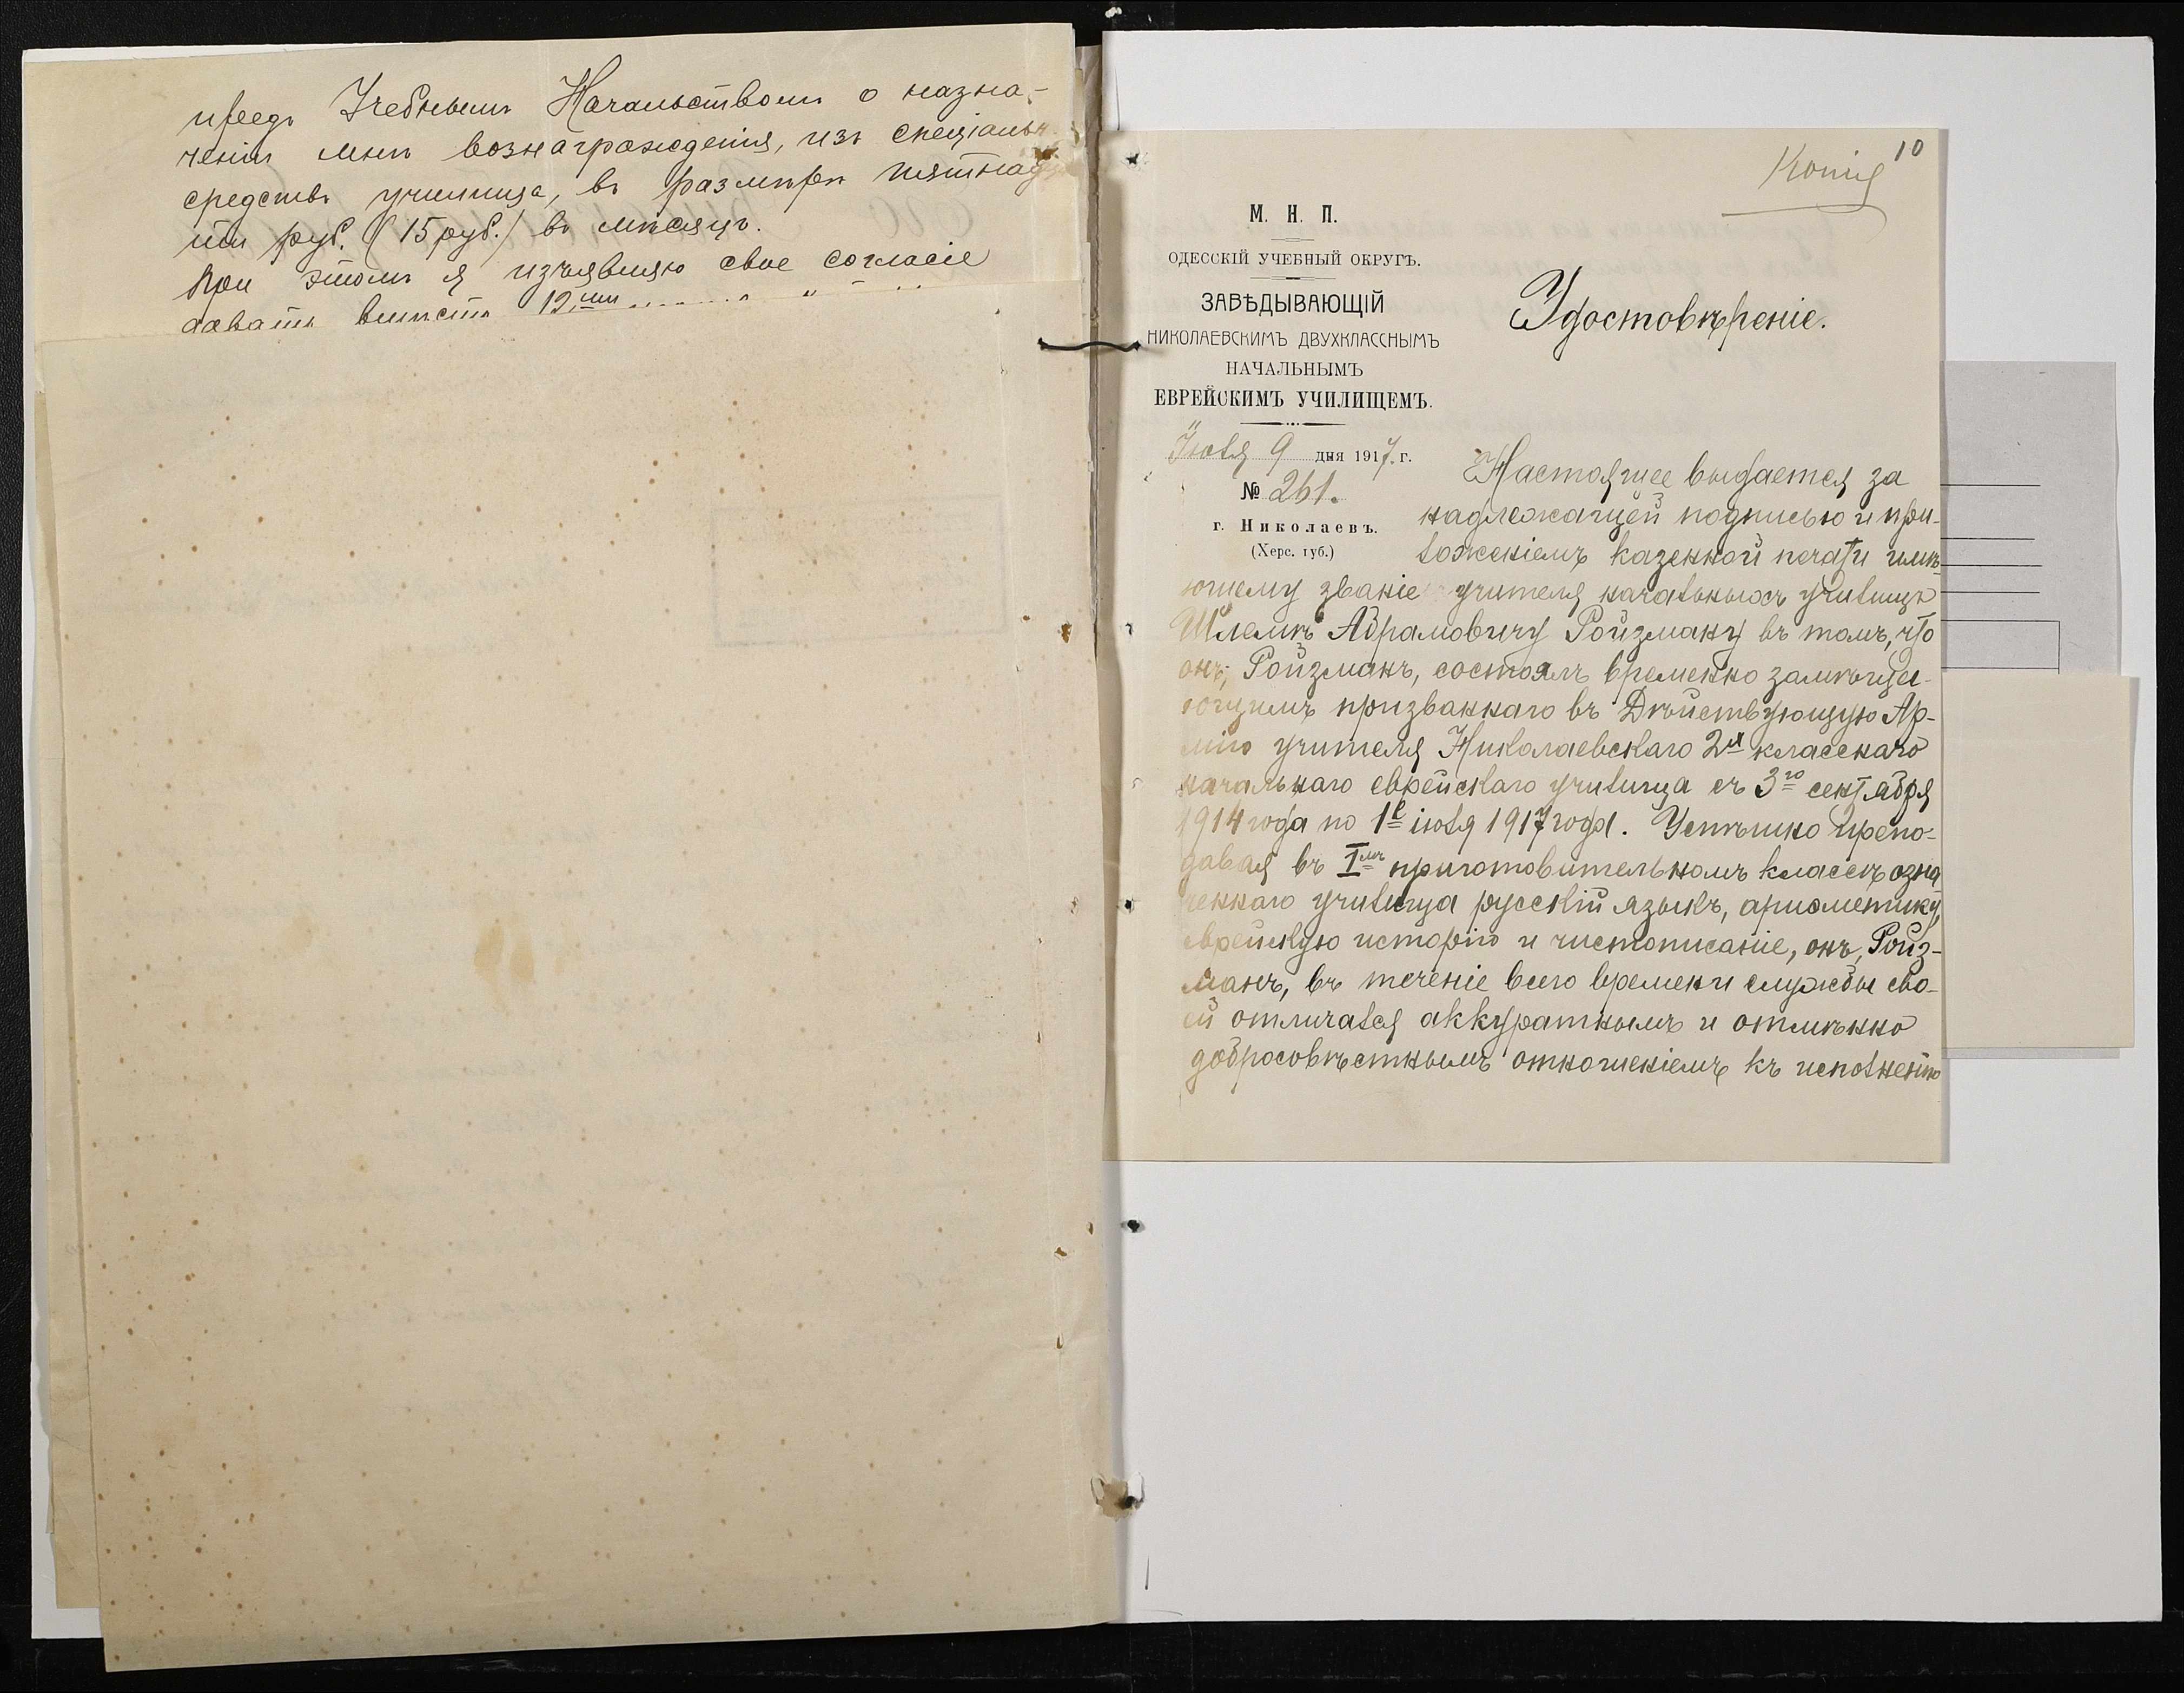 предъ Учебнымъ Начальствомъ о назна-
ченіи мнѣ вознагражденія, изъ спеціальн
средствъ училища, въ размѣрѣ пятнад
ти руб. (15 руб.) въ мѣсяцъ.
При этомъ я изъявляю свое согласіе
давать вмѣсто 12ти
Копія
10
М. Н. П.
ОДЕССКІЙ УЧЕБНЫЙ ОКРУГЪ.
ЗАВѢДЫВАЮЩІЙ
НИКОЛАЕВСКИМЪ ДВУХКЛАССНЫМЪ
НАЧАЛЬНЫМЪ
ЕВРЕЙСКИМЪ УЧИЛИЩЕМЪ.
Іюля 9 дня 1917. г.
№ 261.
г. Николаевъ.
(Херс. губ.)
Удостовѣреніе.
Настоящее выдается за
надлежащей подписью и при-
ложеніемъ казенной печати имѣ-
ющему званіе учителя начальныхъ училищъ
Шлемѣ Абрамовичу Ройзману въ томъ, что
онъ, Ройзманъ, состоялъ временно замѣщаю-
ющимъ призваннаго въ Дѣйствующую Ар-
мію учителя Николаевскаго 2х класснаго
начальнаго еврейскаго училища съ 3го сентября
1914 года по 1е іюля 1917 года. Успѣшно препо-
давая въ Iмъ приготовительномъ классѣ озна
ченнаго училища русскій языкъ, ариѳметику,
еврейскую исторію и чистописаніе, онъ, Ройз-
манъ, въ теченіе всего времени службы сво-
ей отличался аккуратнымъ и отмѣнно
добросовѣстнымъ отношеніемъ къ исполненію